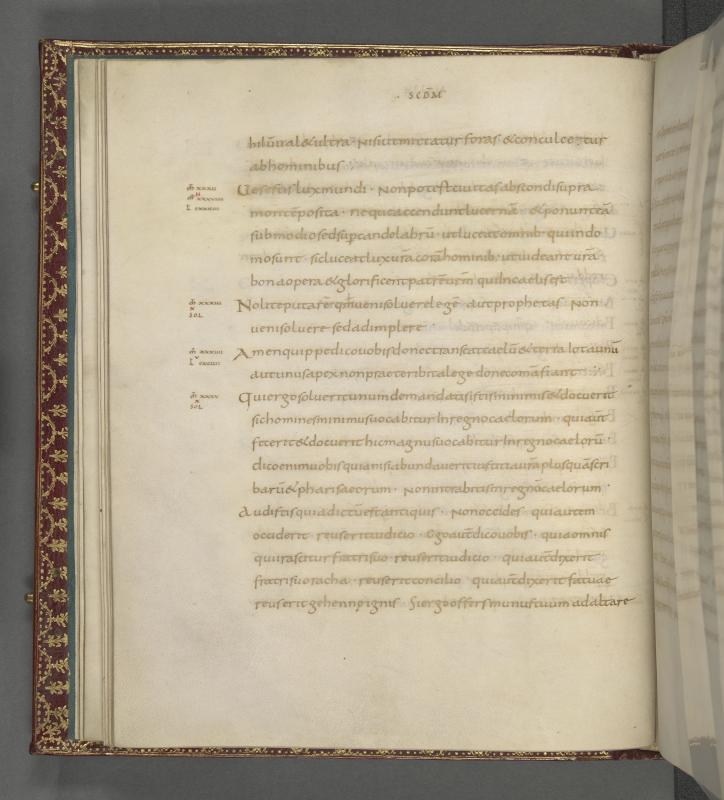 SCDM
hilū ualet ultra · Nisi ut mittatur foras & conculcetur
ab hominibus
Uos estis lux mundi · Non potest civitas abscondi supra
montē posita · neque accendunt lucernā & ponunt eā
sub modio sed sup candelabrū · ut luceat omnib· qui in do
mo sunt · sic luceat lux urā corā hominib· ut uideant urā
bona opera & glorificent patrē urm qui in caelis est
Nolite putare qm̄ veni soluere legē aut prophetas Non
veni soluere sed adimplere
Amen quippe dico vobis donec transeat caelū & terra Iota unū
aut unus apex non praeteribit a lege donec om̄a fiant
Qui ergo soluerit unum de mandatis istis minimis & docuerit
sic homines minimus uocabitur In regno caelorum · qui aut̄
fecerit & docuerit hic magnus uocabitur In regno caelorū ·
dico enim uobis quia nisi abundauerit iustitia urā plus quā scri
barū & pharisaeorum · Non intrabitis in regnō caelorum ·
Audistis quia dictū est antiquis · Non occides qui autem
occiderit reus erit iudicio · Ego aut̄ dico uobis · quia omnis
qui irascitur fratri suo reus erit iudicio · qui aut̄ dixerit
fratri suo racha · reus erit concilio qui aut̄ dixerit fatuae
reus erit gehennę ignis · Si ergo offers munus tuum ad altare